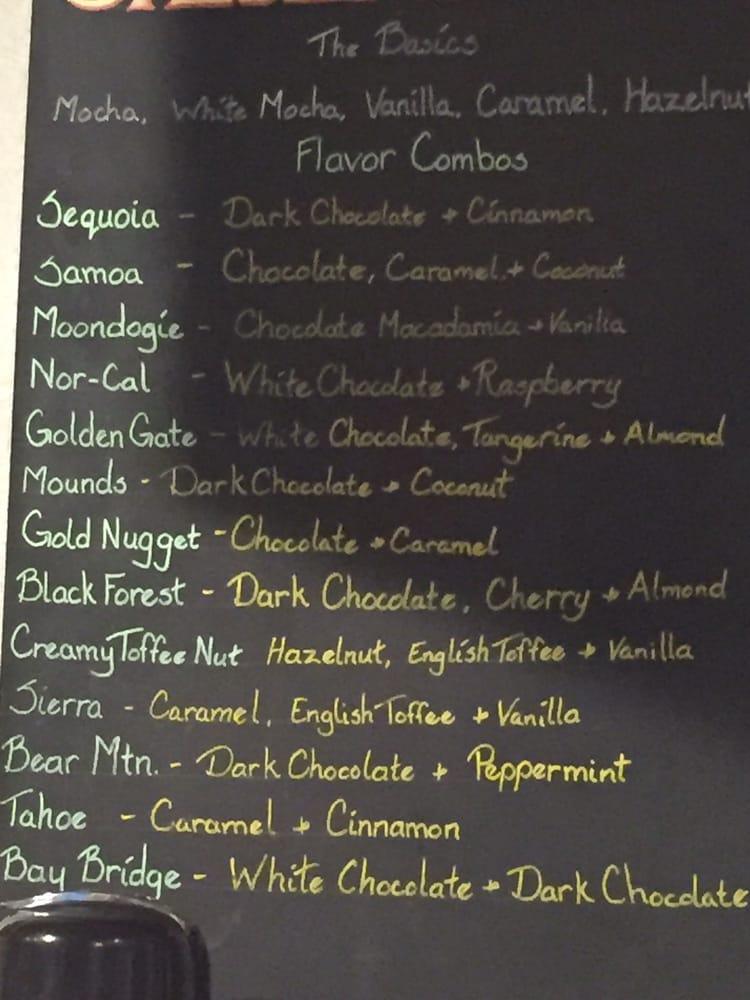 The Basics
Mocha, White Mocha, Vanilla, Caramel, Hazelnut
Flavor Combos
Sequoia - Dark Chocolate + Cinnamon
Samoa - Chocolate, Caramel + Coconut
Moondogie - Chocolate Macadamia + Vanilla
Nor-Cal - White Chocolate + Raspberry
Golden Gate - White Chocolate, Tangerine + Almond
Mounds - Dark Chocolate + Coconut
Gold Nugget - Chocolate + Caramel
Black Forest - Dark Chocolate, Cherry + Almond
Creamy Toffee Nut Hazelnut, English Toffee + Vanilla
Sierra - Caramel, English Toffee + Vanilla
Bear Mtn. - Dark Chocolate + Peppermint
Tahoe - Caramel + Cinnamon
Bay Bridge - White Chocolate + Dark Chocolate